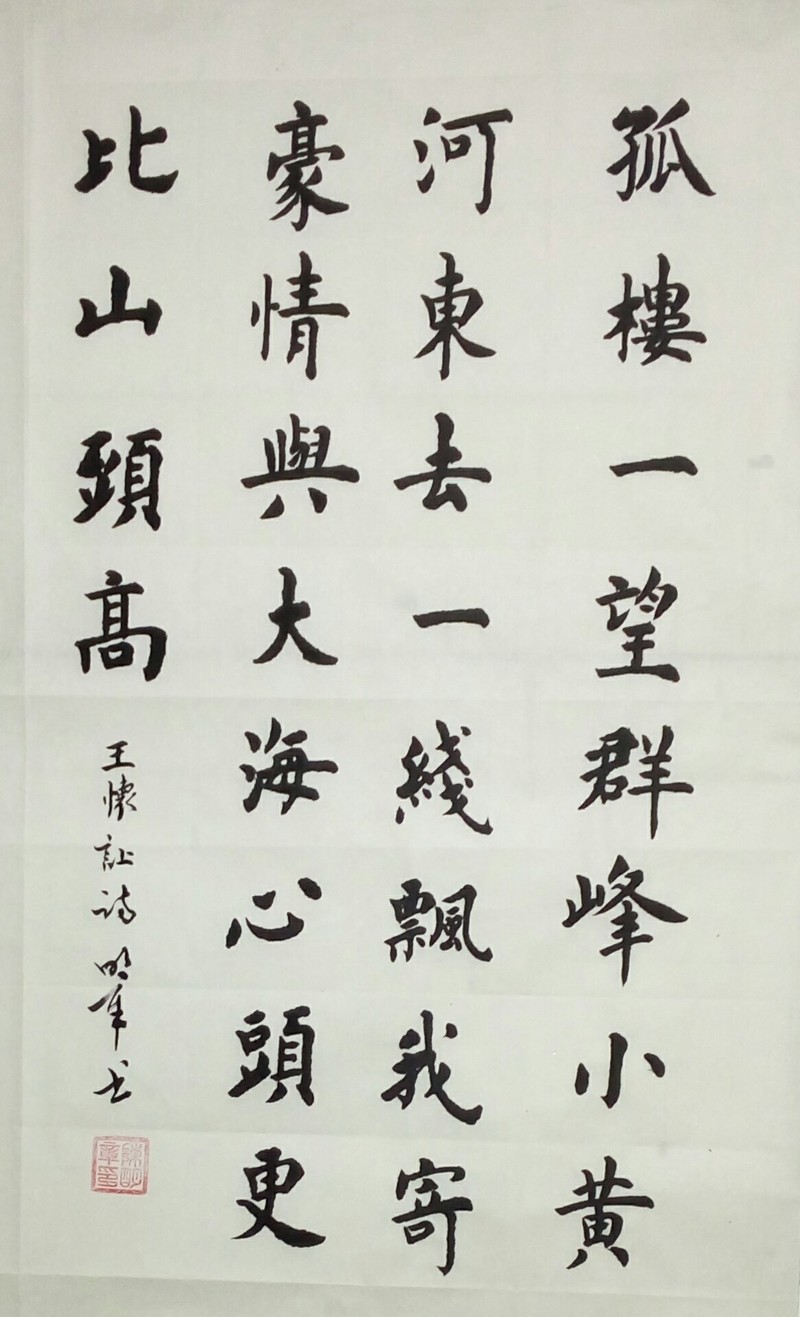 孤樓一望群峰小黃
河東去一綫飄我寄
豪情與大海心頭更
比山頭高
王懷讓詩明章书